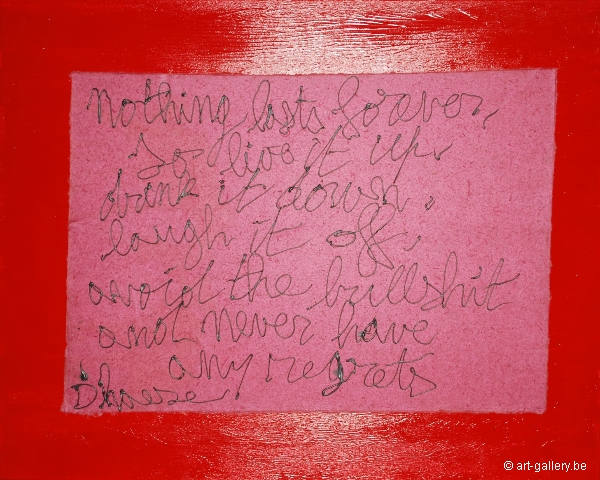 Nothing lasts forever,
So live it up,
drink it down,
laugh it off,
avoid the bullshit
and never have
any regrets
D'haese
© art-gallery.be